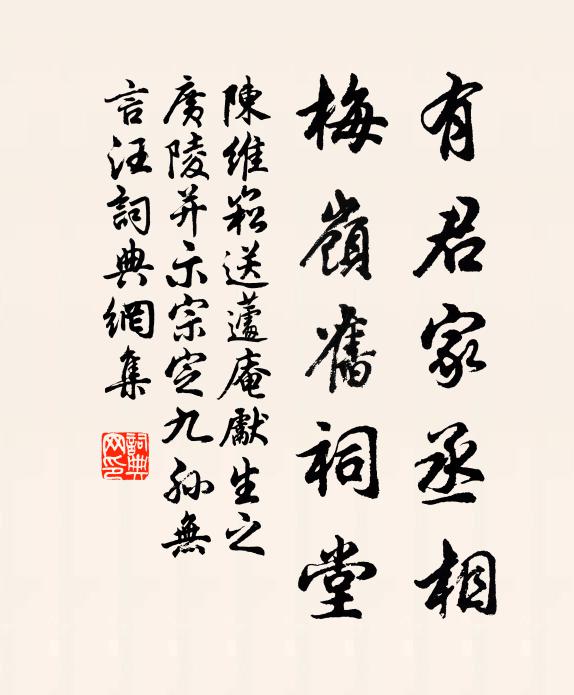 有君家丞相
梅嶺舊祠堂
陳維崧送蘧庵獻生之
廣陵并示宗定九孙無
言汪詞典網集
詞典网印